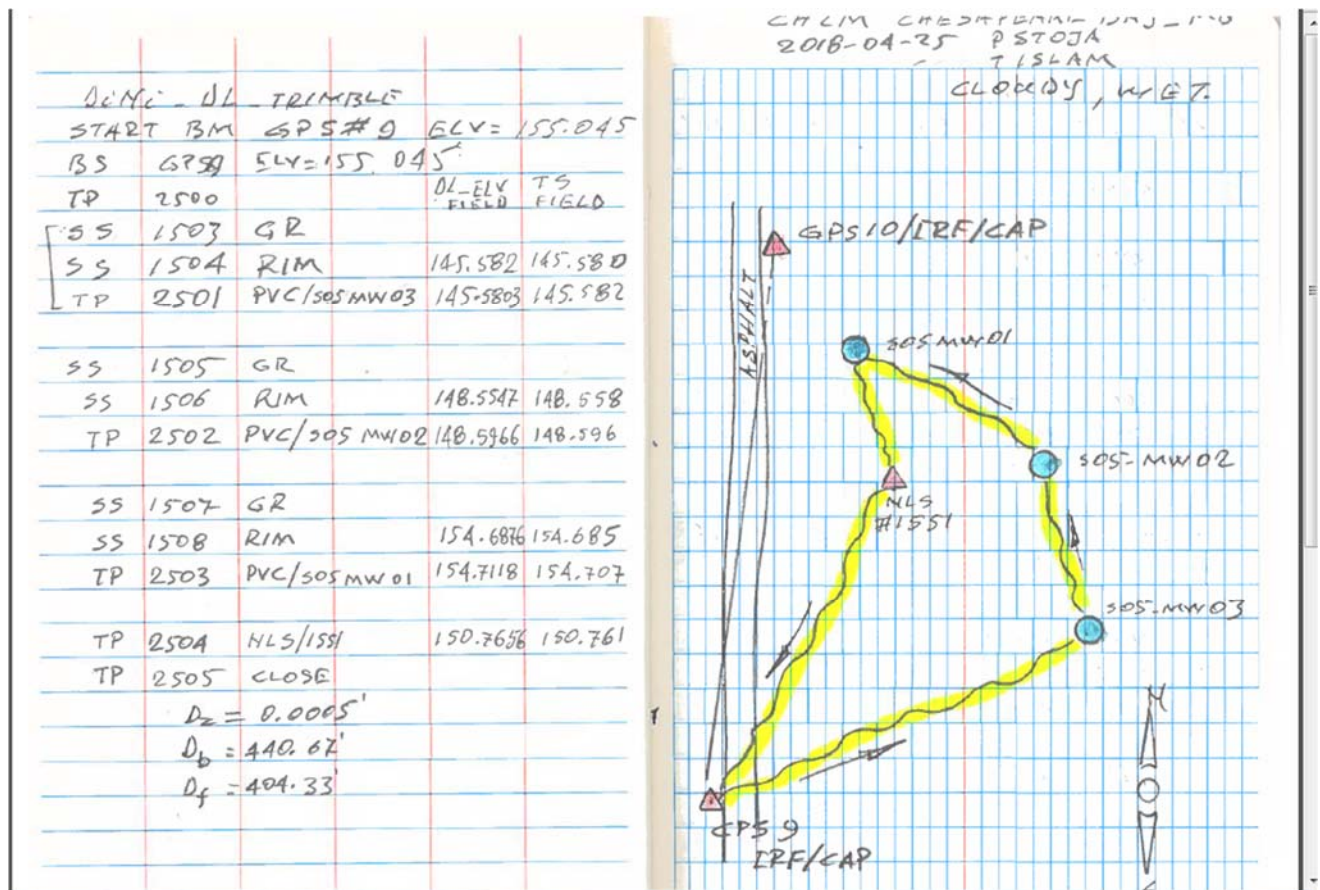 DiNi_DL_TRIMBLE
START BM GPS#9 ELV= 155.045
BS GPS9 ELV=155.045'
TP 2500 DL_ELV FIELD TS FIELD
SS 1503 GR
SS 1504 RIM 145.582 145.580
TP 2501 PVC/S05MW03 145.5803 145.582
SS 1505 GR
SS 1506 RIM 148.5547 148.558
TP 2502 PVC/S05 MW02 148.5966 148.596
SS 1507 GR
SS 1508 RIM 154.6876 154.685
TP 2503 PVC/S05MW01 154.7118 154.707
TP 2504 NLS/1551 150.7656 150.761
TP 2505 CLOSE
Dz = 0.0005'
Db = 440.67'
Df = 404.33'
2018-04-25 PSTOJA
TISLAM
CLOUDY, WET.
GPS10/IRF/CAP
ASPHALT
S05MW01
S05-MW02
NLS
#1551
S05-MW03
N
GPS 9
IRF/CAP